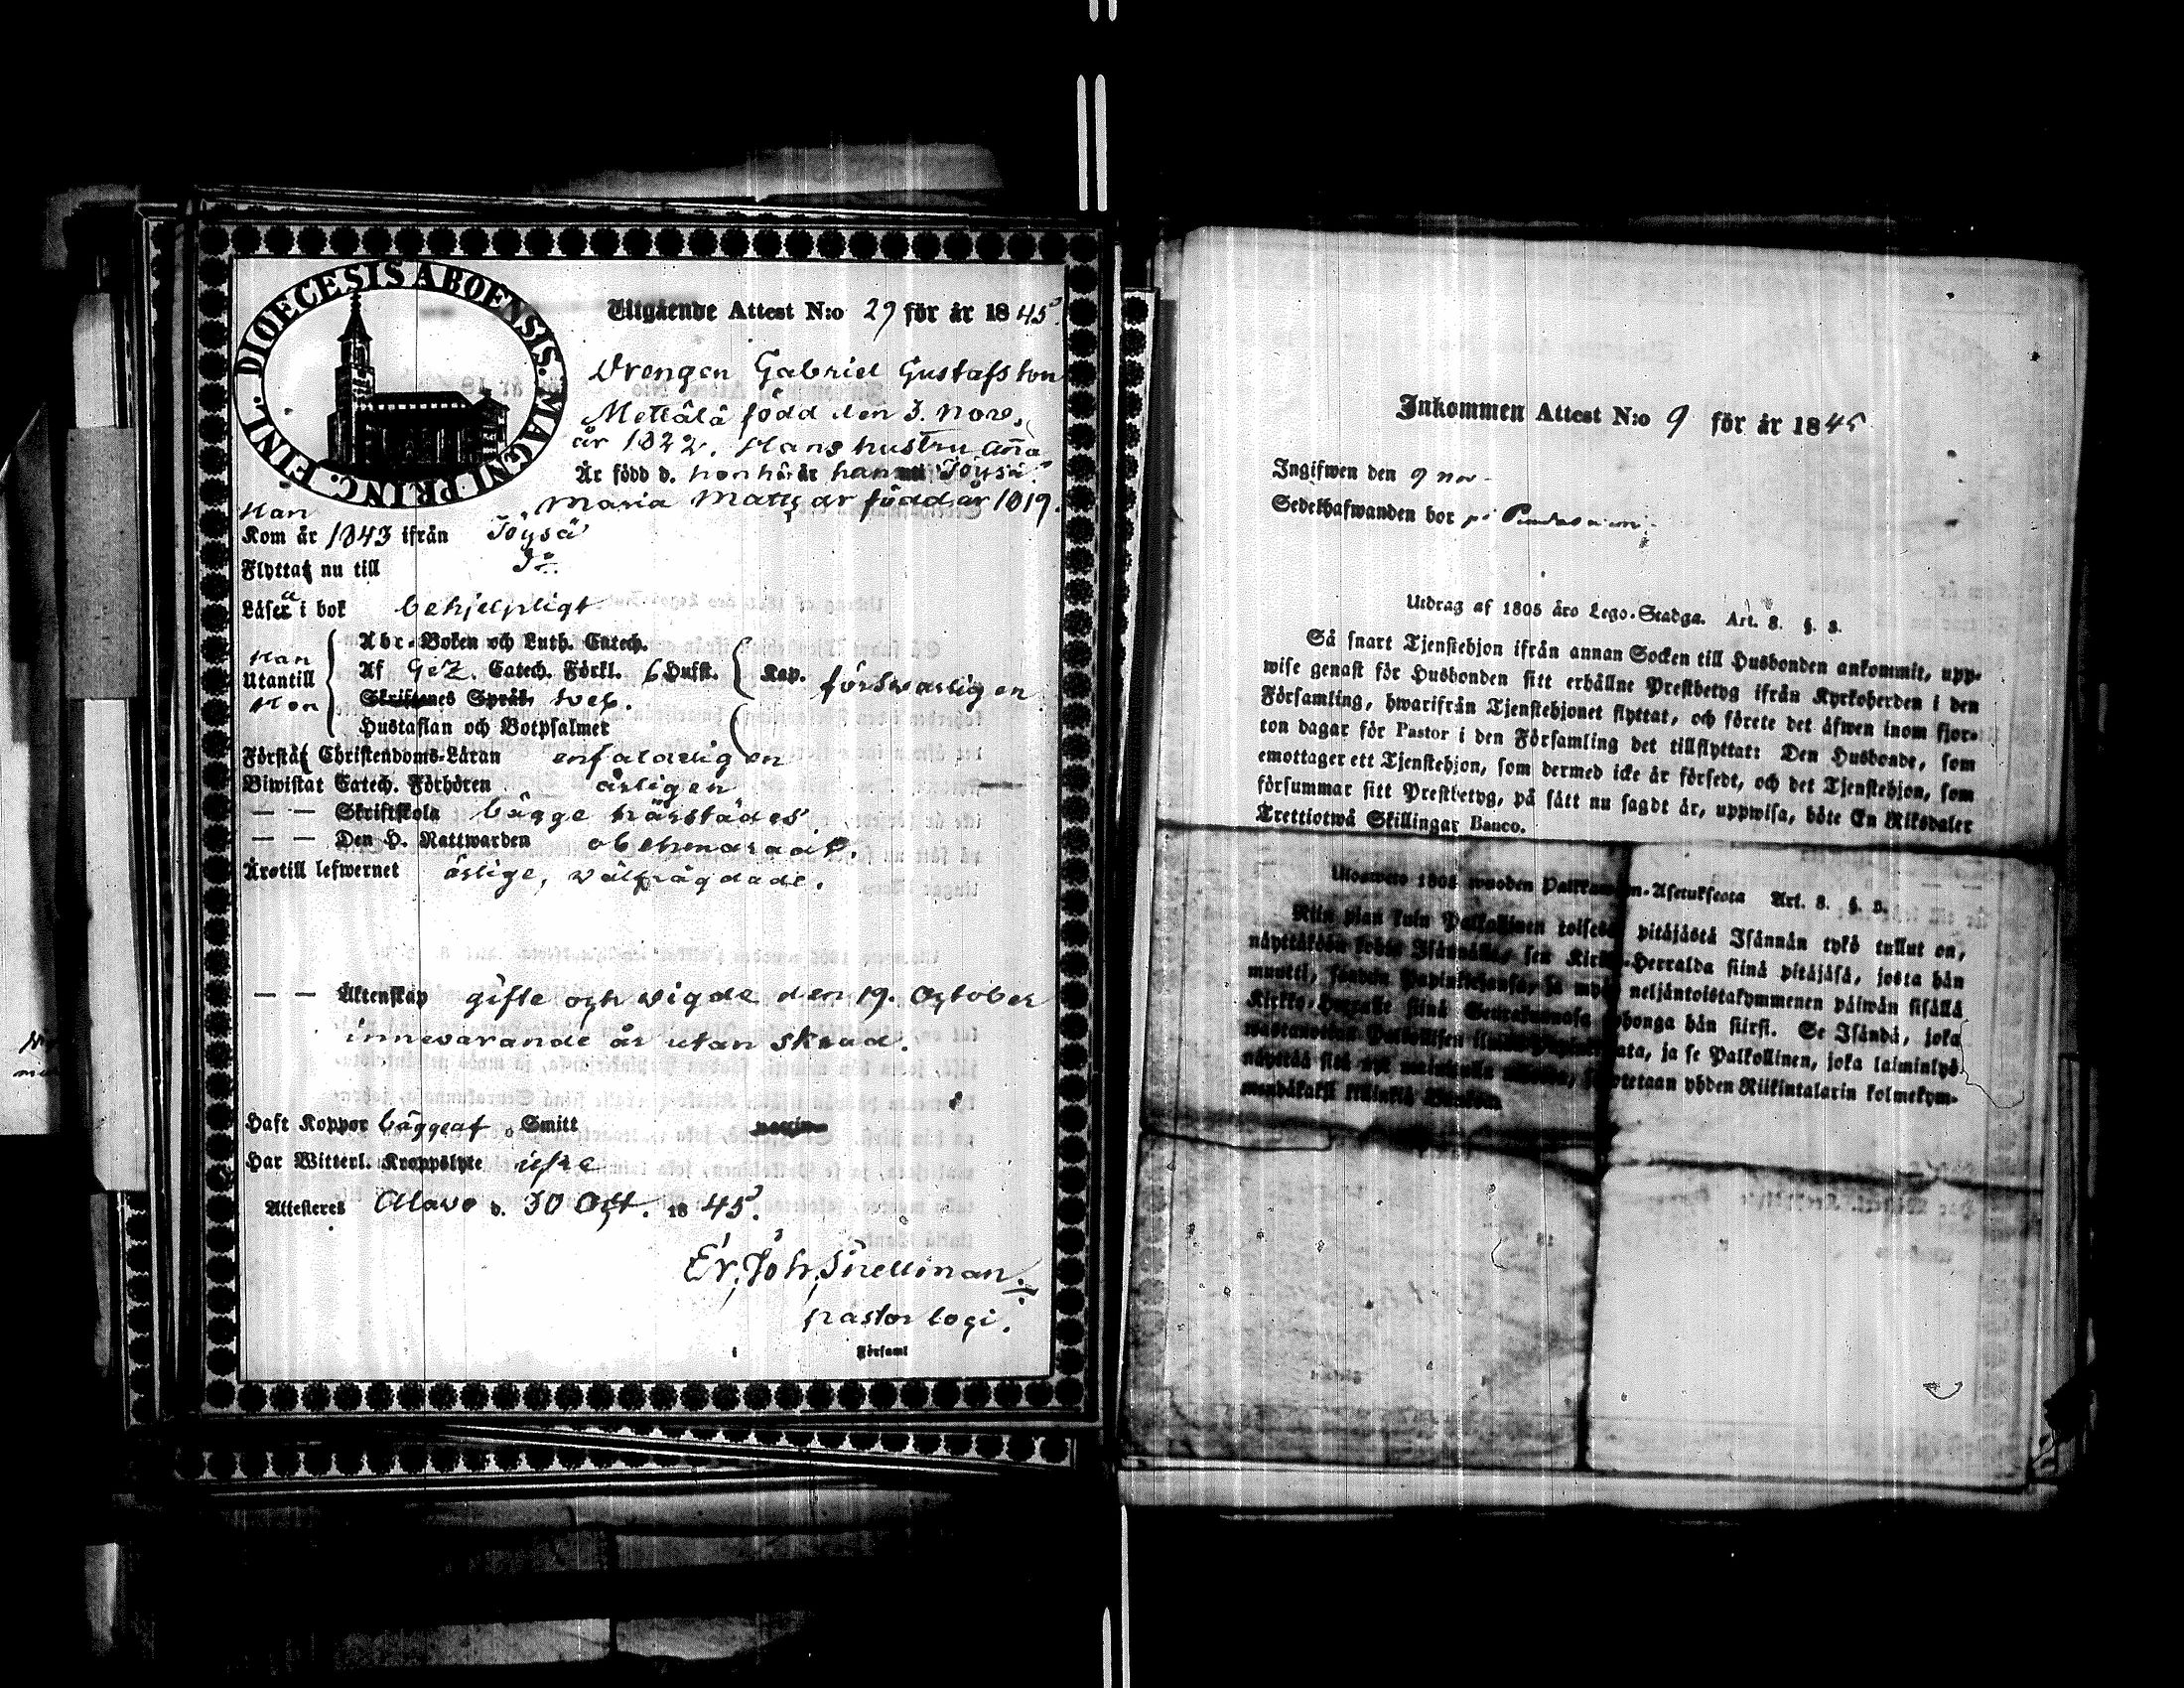 DIOECESIS ABOENSIS. MAGNI PRINC. FINL.
Utgående Attest N:o 29 för år 1845.
Drengen Gabriel Gustafsson
Mettälä född den 3. Nov.
år 1822. Hans hustru Anna
Är född d. hon här han Töysä
Maria Matts dr född år 1819.
Han
Kom år 1843 ifrån Töysä
Flytta nu till Do
Läsa i bok behjelpligt
Abr-Boken och Luth. Catech.
Han
Utantill
Hon
Af G & Z. Catech. Förkl. 6 Hufst. Kap. försvarligen
Skriftenes Språk
Hustaflan och Botpsalmer
Förstå Christendoms-Läran enfaldeligen
Biwistat Catech. Förhören årligen
— — Skriftskola bägge härstädes.
— — Den H. Nattwarden obehindradt.
Äro till lefwernet ärlige, wälfrägdade.
— — Äktenskap gifte och vigde den 19. October
innevarande år utan skrud.
Haft Koppor bägge af Smitt
Har Witterl. Kroppslyte
Attesteres Alavo d. 30 Oct. 1845.
Er. Joh. Snellman.
pastor loci.
i Församl
Inkommen Attest N:o 9 för år 1845
Ingifwen den 9 nov
Sedelhafwanden bor på
Utdrag af 1805 års Lego-Stadga. Art. 8. §. 3.
Så snart Tjenstehjon ifrån annan Socken till Husbonden ankommit, upp-
wise genast för Husbonden sitt erhållne Prestbetyg ifrån Kyrkoherden i den
Församling, hwarifrån Tjenstehjonet flyttat, och förete det äfwen inom fjor-
ton dagar för Pastor i den Församling det tillflyttat: Den Husbonde, som
emottager ett Tjenstehjon, som dermed icke är försedt, och det Tjenstehjon, som
försummar sitt Prestbetyg, på sätt nu sagdt är, uppwisa, böte En Riksdaler
Trettiotwå Skillingar Banco.
Ulosweto 1805 wuoden Palkka -Asetuksesta Art. 8. §. 3.
Niin pian kuin Palkollinen toisesta pitäjästä Isännän tykö tullut on,
näyttäköön Isännälle, sen Kirkko-Herralda siinä pitäjäsä, josta hän
muutti, saadun Papinkirjansa, ja myös neljäntoistakymmenen päiwän sisällä
Kirkko-Herralle siinä Seurakunnasa johonga hän siirsi. Se Isändä, joka
Palkollisen ilman ja se Palkollinen, joka laiminlyö
näyttää sitä nyt mainitulla sakotetaan yhden Riikintalarin kolmekym-
mendäkaksi killinkiä Bankoa.